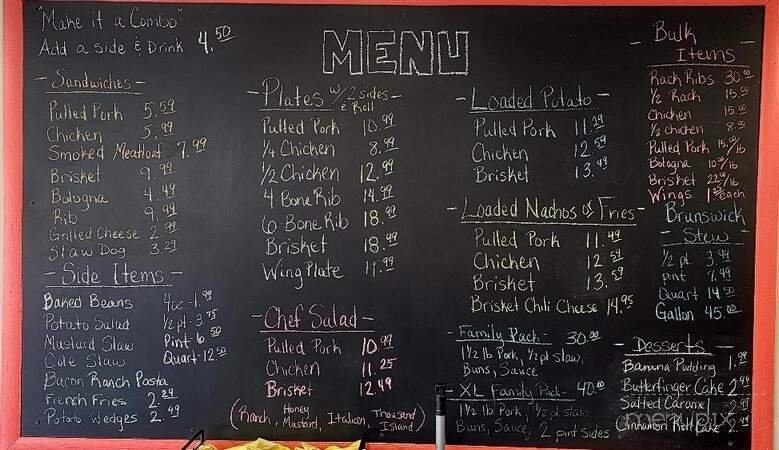 "Make it a Combo"
Add a side & Drink 4.50
MENU
- Sandwiches -
Pulled Pork 5.59
Chicken 5.99
Smoked Meatloaf 7.99
Brisket 9.99
Bologna 4.49
Rib 9.99
Grilled Cheese 2.99
Slaw Dog 3.29
- Side Items -
Baked Beans 4oz - 1.99
Potato Salad ½ pt - 3.75
Mustard Slaw Pint - 6.50
Cole Slaw Quart - 12.50
Bacon Ranch Pasta
French Fries 2.29
Potato Wedges 2.99
- Plates w/2 sides & Roll -
Pulled Pork 10.99
¼ Chicken 8.99
½ Chicken 12.99
4 Bone Rib 14.99
6-Bone Rib 18.99
Brisket 18.99
Wing Plate 11.99
- Chef Salad -
Pulled Pork 10.99
Chicken 11.25
Brisket 12.49
(Ranch, Honey Mustard, Italian, Thousand Island)
- Loaded Potato -
Pulled Pork 11.29
Chicken 12.59
Brisket 13.49
- Loaded Nachos or Fries -
Pulled Pork 11.49
Chicken 12.59
Brisket 13.59
Brisket Chili Cheese 14.95
- Family Pack - 30.00
1½ lb Pork, ½ pt slaw,
Buns, Sauce
- XL Family Pack - 40.00
1½ lb Pork, ½ pt slaw
Buns, Sauce, 2 pint Sides
- Bulk Items -
Rack Ribs 30.00
½ Rack 15.00
Chicken 15.00
½ Chicken 8.00
Pulled Pork /lb
Bologna /lb
Brisket /lb
Wings each
Brunswick
- Stew -
½ pt 3.99
pint 7.99
Quart 14.50
Gallon 45.00
Desserts
Banana Pudding 1.99
Butterfinger Cake 2.99
Salted Caramel 2.99
Cinnamon Roll Cake 2.99
menupix